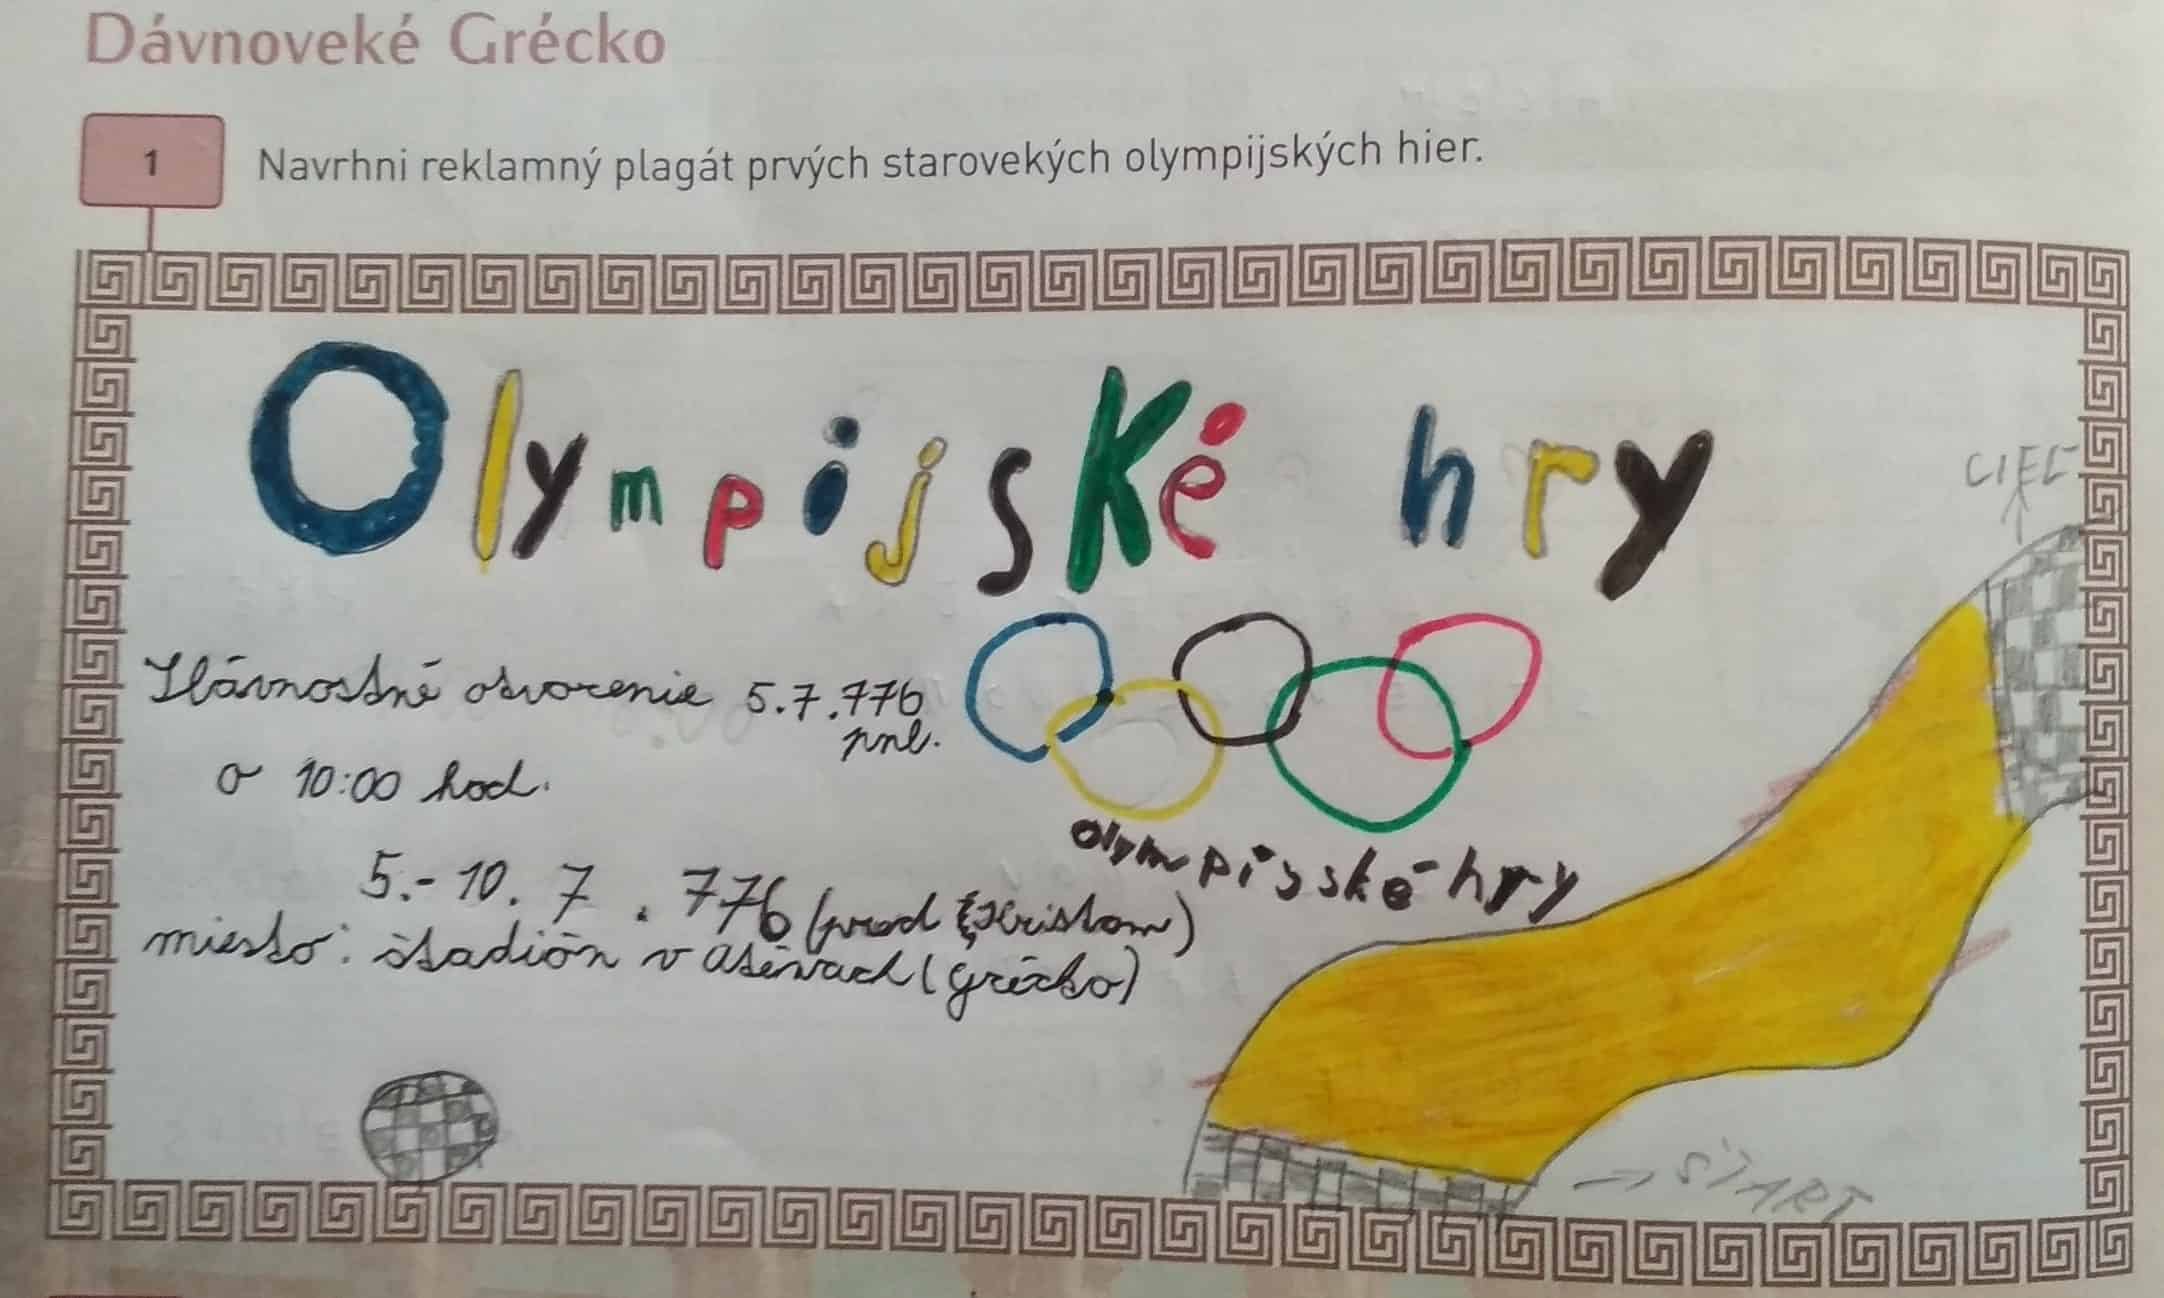 Dávnoveké Grécko
1
Navrhni reklamný plagát prvých starovekých olympijských hier.
Olympijské hry
CIEĽ
Slávnostné otvorenie 5.7.776
pnl.
o 10:00 hod.
olympisské hry
5.-10. 7. 776 (pred Kristom)
miesto: štadión v Aténach (grécko)
START